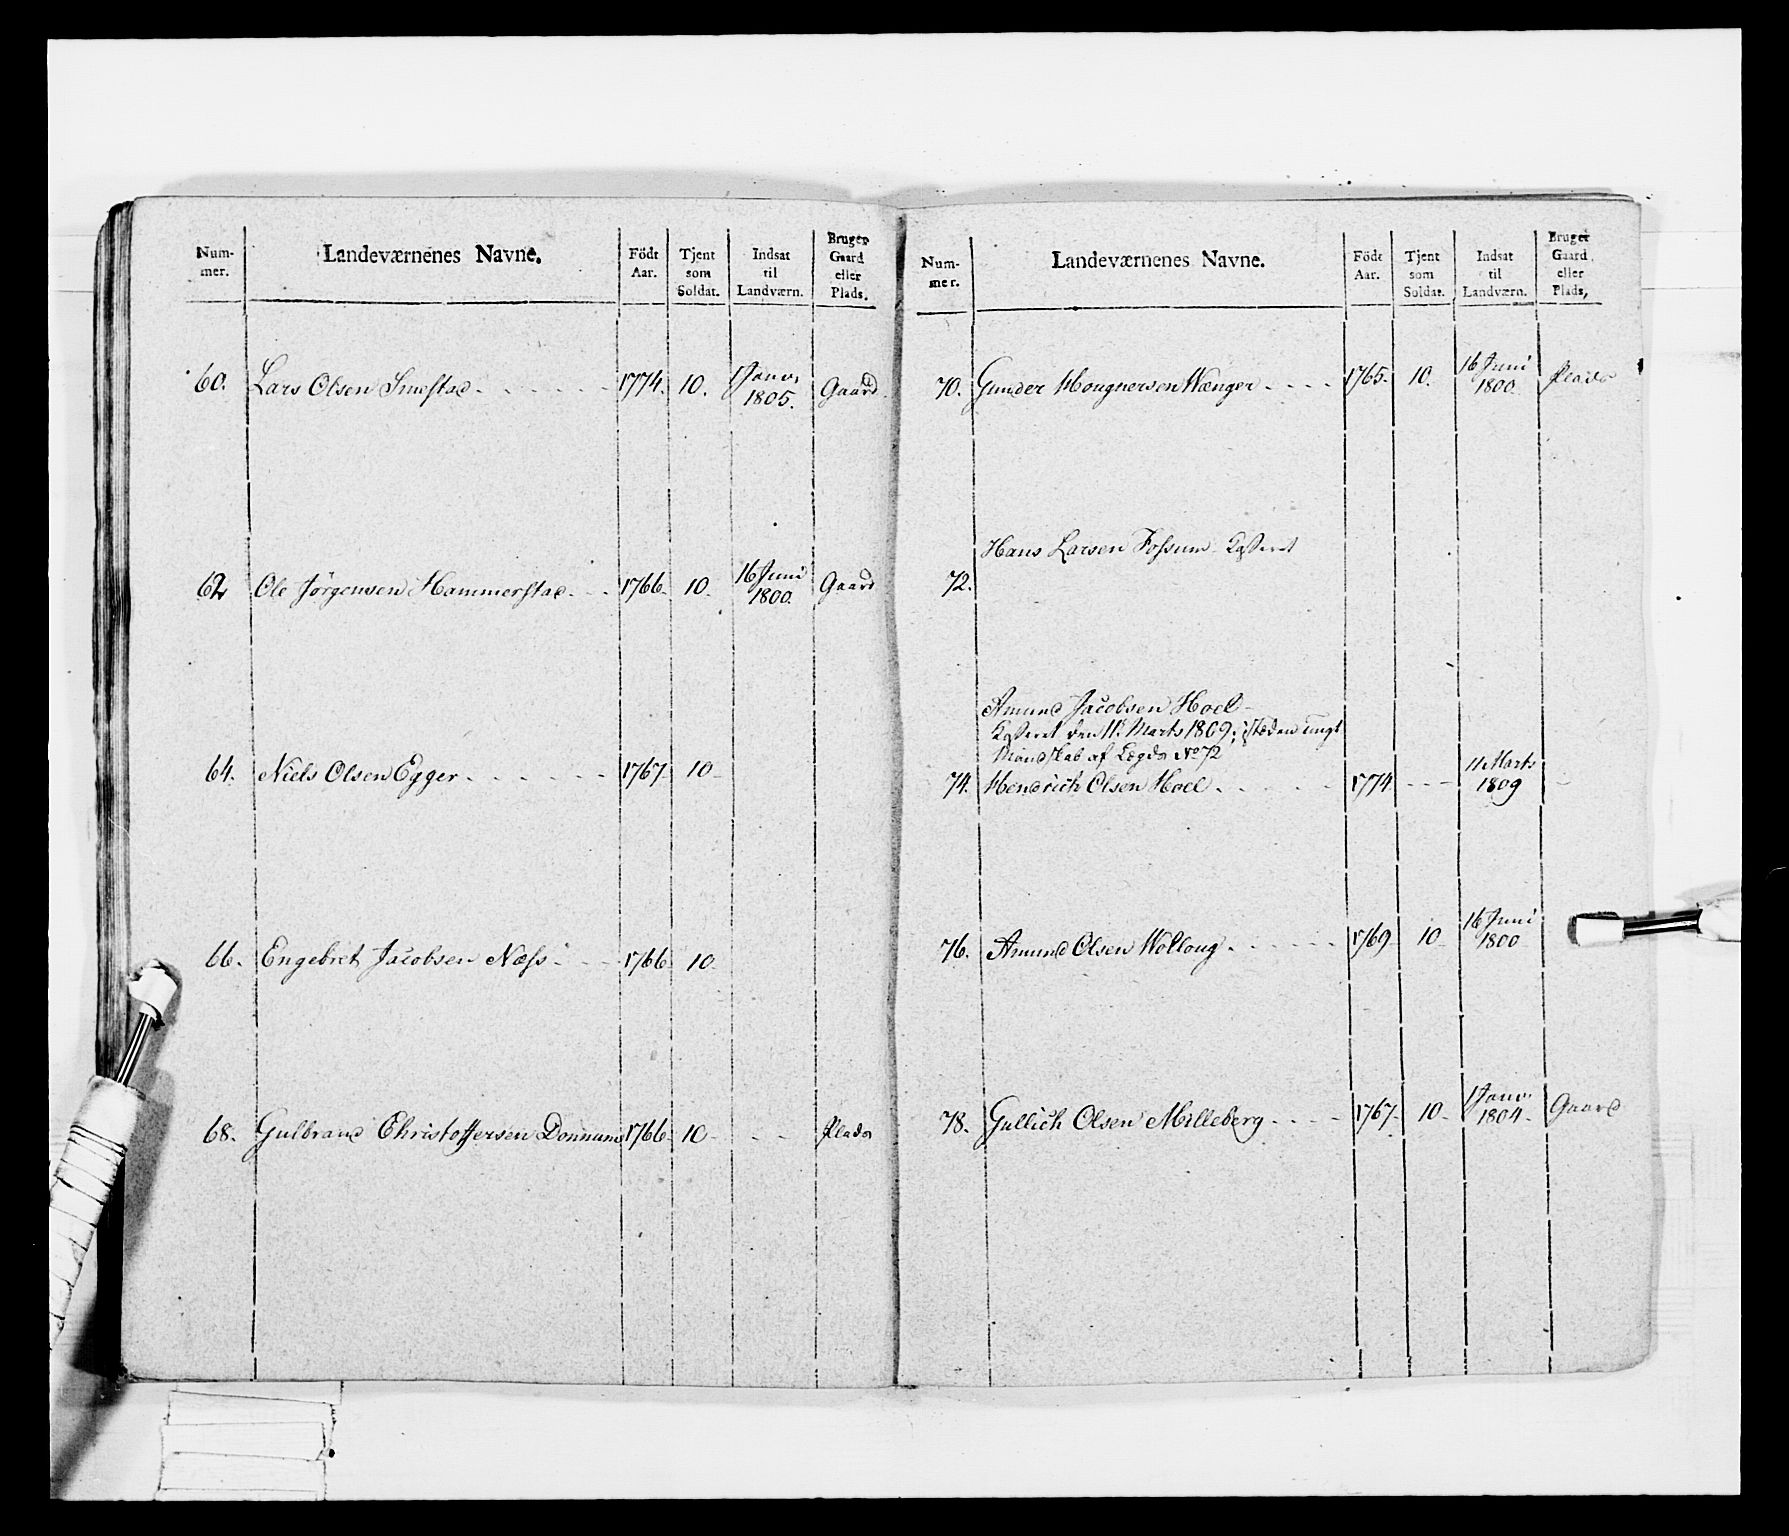 Num-
mer.
Landeværnenes Navne.
Födt
Aar.
Tjent
som
Soldat.
Indsat
til
Landværn.
Bruger
Gaard
eller
Plads.
60. Lars Olsen Smestad 1774. 10. 1 Janv. 1805. Gaard
62 Ole Jörgensen Hammerstad 1766. 10. 16 Juni 1800. Gaard
64. Niels Olsen Egger 1767. 10
66. Engebret Jacobsen Næss 1766 10
68. Gulbrand Christoffersen Donnum 1766 10 - - Plads
Num-
mer.
Landeværnenes Navne.
Födt
Aar.
Tjent
som
Soldat.
Indsat
til
Landværn.
Bruger
Gaard
eller
Plads,
70. Gunder Mougnersen Wænger 1765. 10. 16 Juni 1800. Plads
Hans Larsen Fossum Casseret
72.
Amund Jacobsen Hoel
Casseret den 11. Marts 1809; istæden ungt
Mandskab af Lægds No 72
74. Hendrich Olsen Hoel 1774 - - - 11 Marts 1809
76. Amund Olsen Wollaug 1769 10 16 Juni 1800
78. Gullich Olsen Milleberg 1767. 10 1 Janv. 1804. Gaard